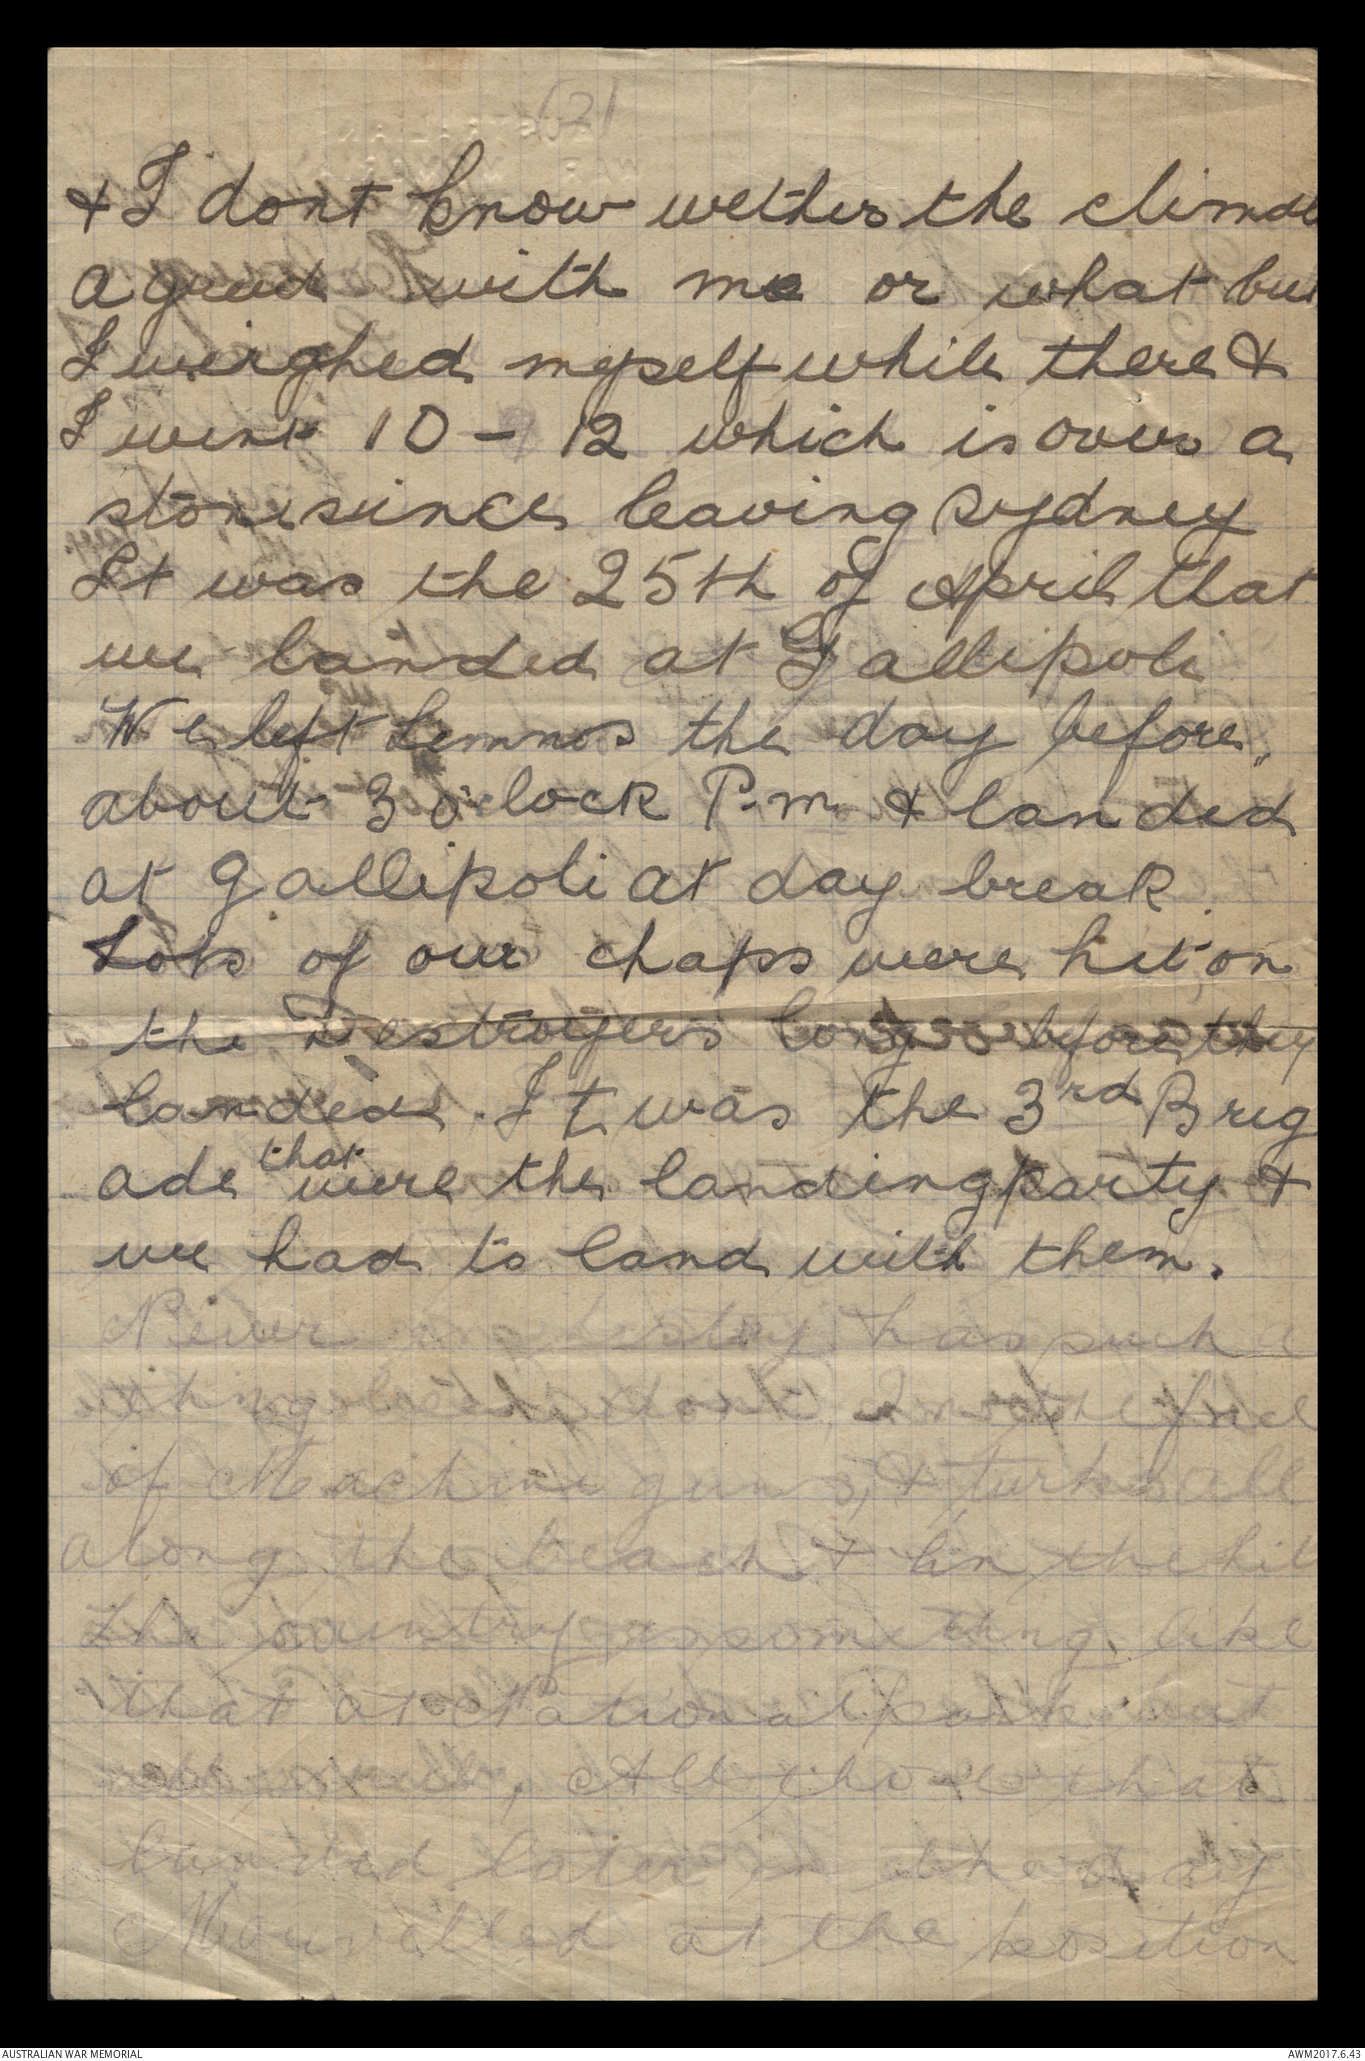 (2)
& I dont know wether the climate
agreed with me or what but
I weighed myself while there &
I went 10 - 12 which is over a
stone since leaving Sydney
It was the 25th of April that
we landed at Gallipoli
We left Lemnos the day before,
about 3 o'clock P.m. & landed
at Gallipoli at day break.
Lots of our chaps were hit on
the Destroyers long before they
landed. It was the 3rd Brig
ade that were the landing party &
we had to land with them.
Never in history has such a
thing been done, in the face
of Machine guns, & turks all
along the beach & in the hill
The country is something like
that at National park but
All those that
landed later in the day
Marvelled at the position
AUSTRALIAN WAR MEMORIAL
AWM2017.6.43